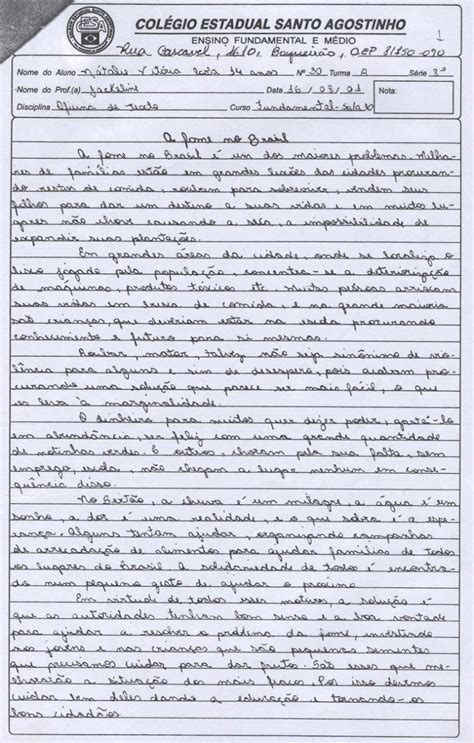 COLÉGIO ESTADUAL SANTO AGOSTINHO
ENSINO FUNDAMENTAL E MÉDIO
1
Rua Cascavel, 1610, Boqueirão, CEP 81750-090
Nome do Aluno Natálie Vitória 14 anos Nº 30 Turma A Série 8ª
Nome do Prof.(a) Jackeline Data 16/08/01 Nota:
Disciplina Oficina de Texto Curso Fundamental
A fome no Brasil
A fome no Brasil é um dos maiores problemas. Milha-
res de famílias estão em grandes lixões das cidades procuran-
do restos de comida, roubam para sobreviver, vendem seus
filhos para dar um destino a suas vidas e em muitos lu-
gares não chove causando a seca, a impossibilidade de
expandir suas plantações.
Em grandes áreas da cidade, onde se localiza o
lixo jogado pela população, concentra-se a deteriorização
de máquinas, produtos tóxicos etc. Muitas pessoas arriscam
suas vidas em busca de comida, e na grande maioria
são crianças, que deveriam estar na escola procurando
conhecimento e futuro para si mesmas.
Roubar, matar, talvez não seja sinônimo de vio-
lência para alguns e sim de desespero, pois acabam pro-
curando uma solução que parece ser mais fácil, o que
os leva à marginalidade.
O dinheiro para muitos quer dizer poder, gastá-lo
em abundância, ser feliz com uma grande quantidade
de notinhas verdes. E outros, choram pela sua falta, sem
emprego, escola, não chegam a lugar nenhum em conse-
quência disso.
No Sertão, a chuva é um milagre, a água é um
sonho, a dor é uma realidade, e o que sobra é a espe-
rança. Alguns tentam ajudar, organizando campanhas
de arrecadação de alimentos para ajudar famílias de todos
os lugares do Brasil. A solidariedade de todos é encontra-
do num pequeno gesto de ajudar o próximo.
Em virtude de todos esses motivos, a solução é
que as autoridades tenham bom senso e a boa vontade
para ajudar a resolver o problema da fome, investindo
nos jovens e nas crianças que são pequenas sementes
que precisamos cuidar para dar frutos. São esses que me-
lhorarão a situação dos mais fracos. Por isso devemos
cuidar bem deles dando a educação e tornando-os
bons cidadãos.